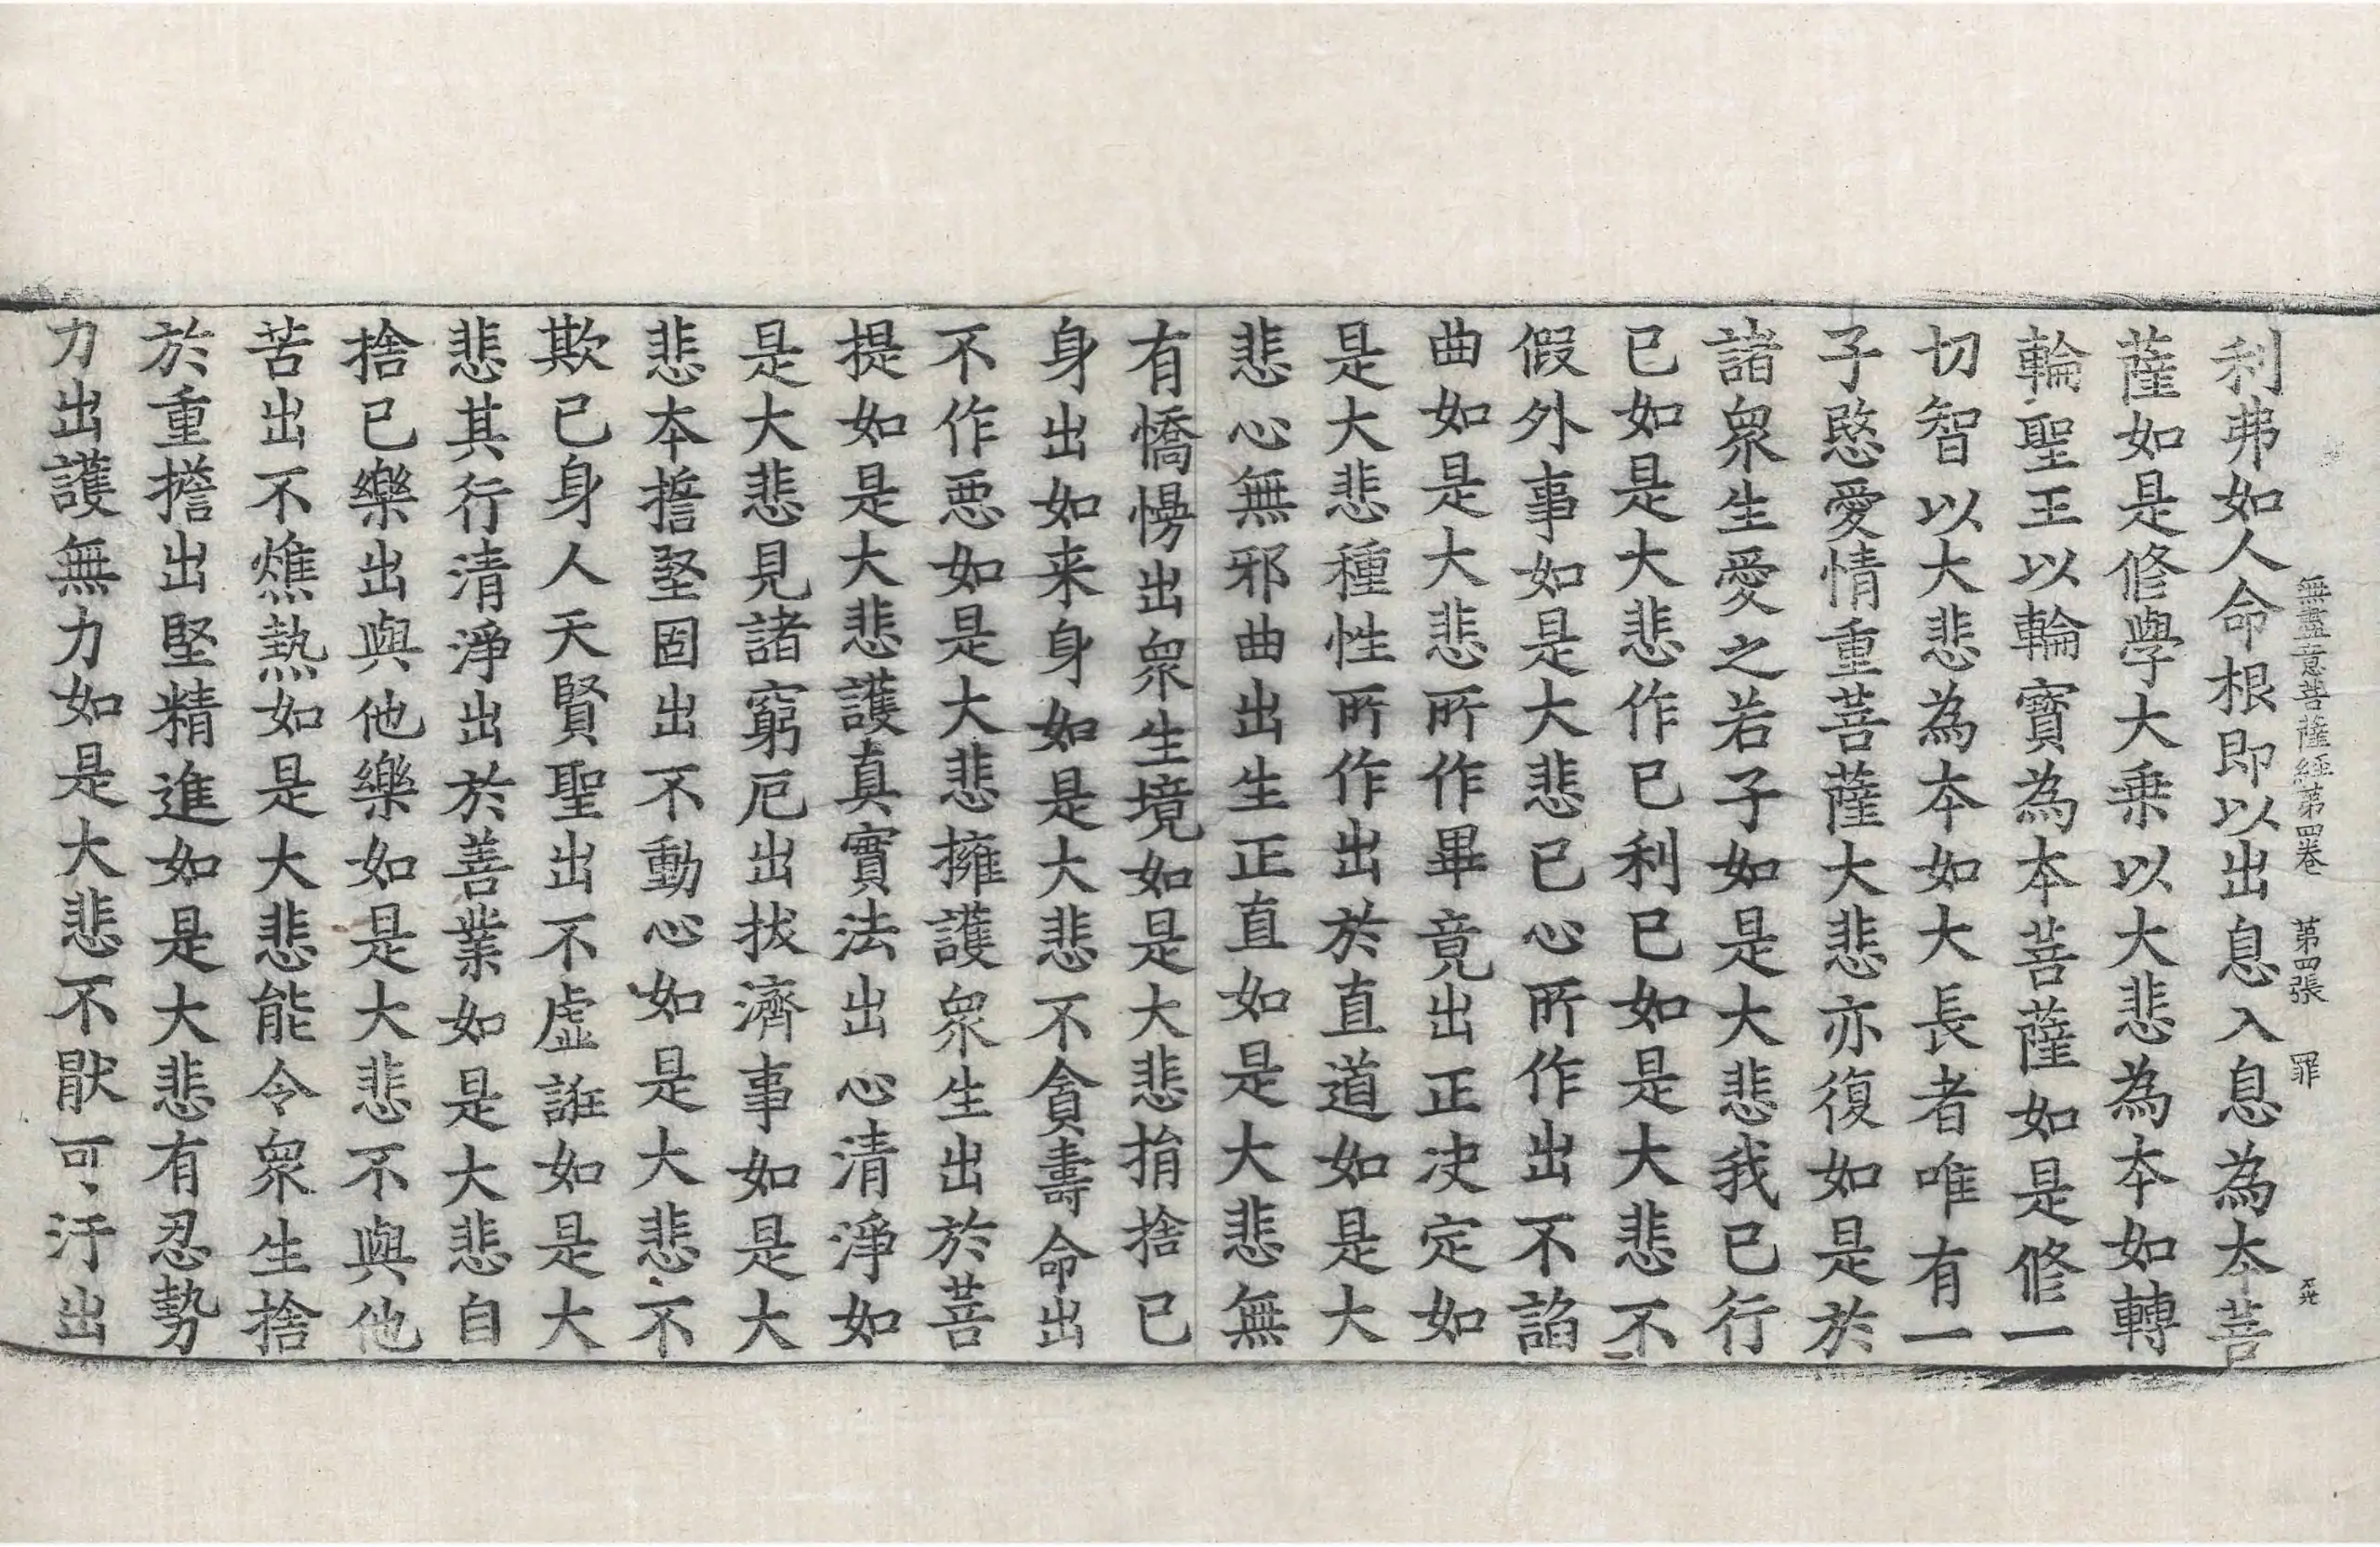 無盡意菩薩經第四卷 第四張 罪
利弗如人命根即以出息入息為本菩
薩如是修學大乗以大悲為本如轉
輪聖王以輪寳為本菩薩如是修一
切智以大悲為本如大長者唯有一
子愍愛情重菩薩大悲亦復如是於
諸衆生愛之若子如是大悲我已行
已如是大悲作已利已如是大悲不
假外事如是大悲已心所作出不諂
曲如是大悲所作畢竟出正决定如
是大悲種性所作出於直道如是大
悲心無邪曲出生正直如是大悲無
有憍慢出衆生境如是大悲捐捨已
身出如来身如是大悲不貪壽命出
不作悪如是大悲擁護衆生出於菩
提如是大悲護真實法出心清淨如
是大悲見諸窮厄出拔濟事如是大
悲本誓堅固出不動心如是大悲不
欺已身人天賢聖出不虚誑如是大
悲其行清淨出於善業如是大悲自
捨已樂出與他樂如是大悲不與他
苦出不燋熱如是大悲能令衆生捨
於重擔出堅精進如是大悲有忍勢
力出護無力如是大悲不猒可汙出